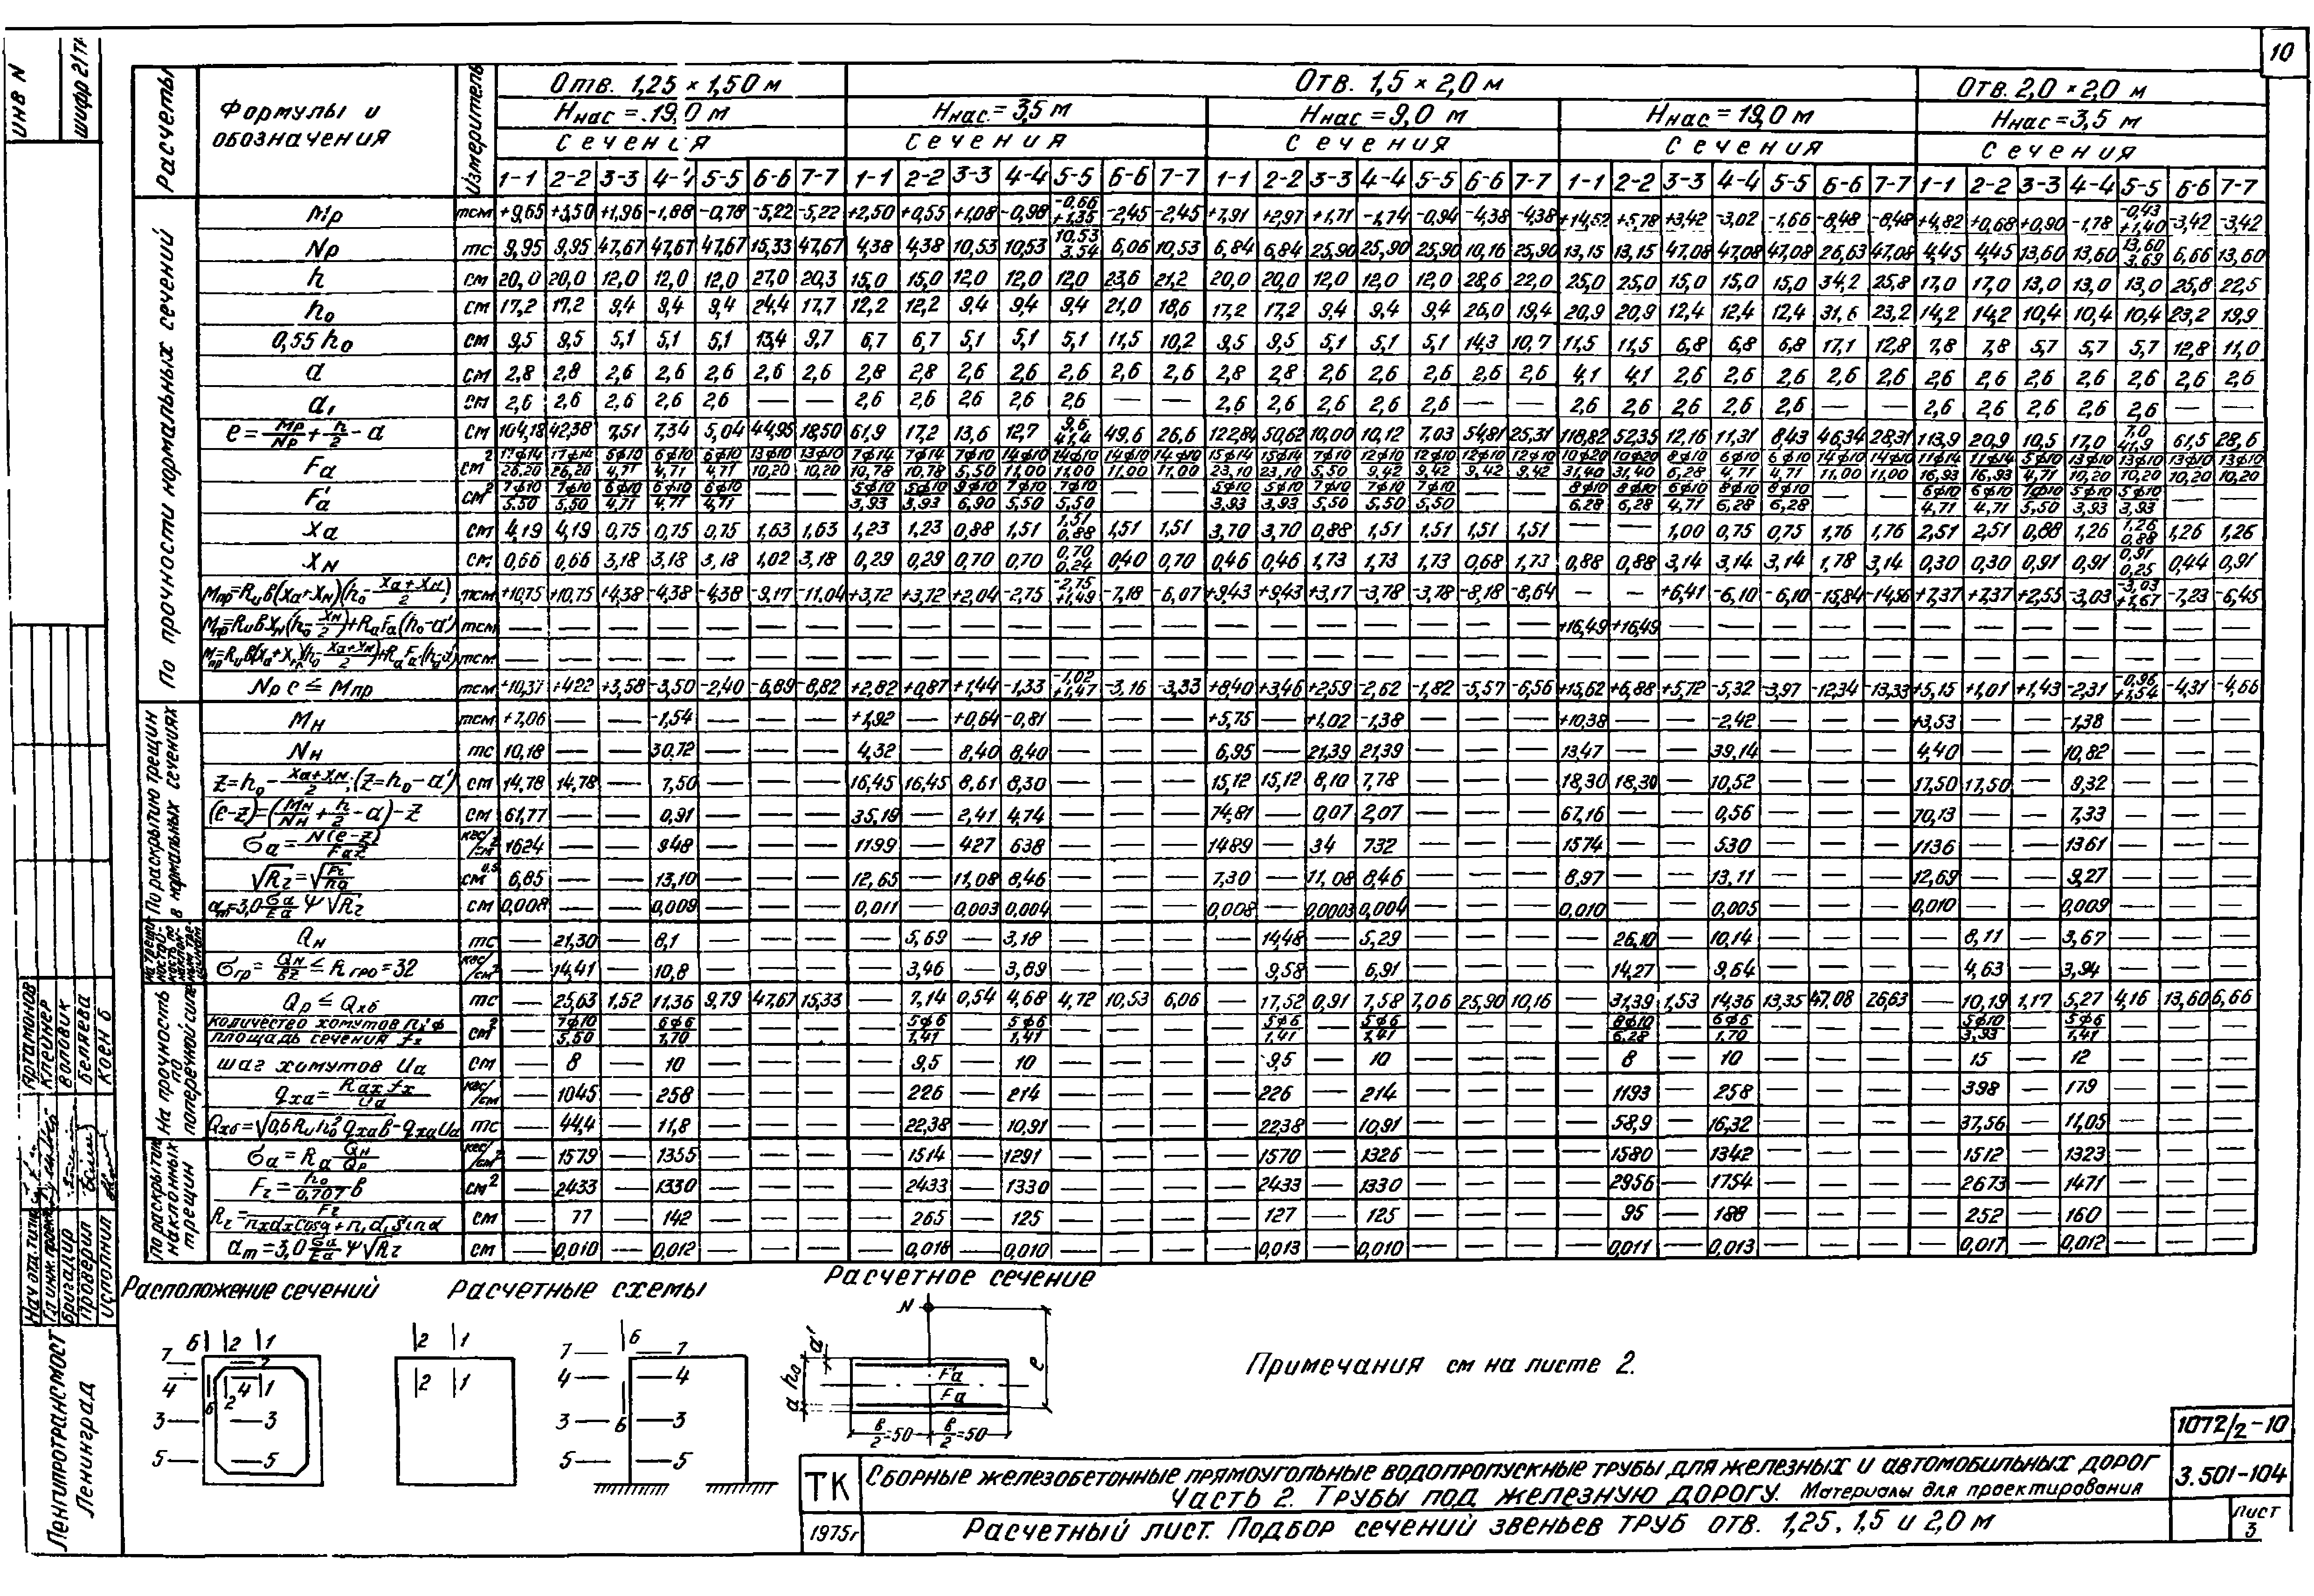 10
ИНВ N
шифр 21ТМ
Расчеты
Формулы и обозначения
Измеритель
Отв. 1,25 × 1,50 м
Отв. 1,5 × 2,0 м
Отв. 2,0 × 2,0 м
Ннас = 19,0 м
Ннас = 3,5 м
Ннас = 9,0 м
Ннас = 19,0 м
Ннас = 3,5 м
Сечения Сечения Сечения Сечения Сечения
1-1 2-2 3-3 4-4 5-5 6-6 7-7 1-1 2-2 3-3 4-4 5-5 6-6 7-7 1-1 2-2 3-3 4-4 5-5 6-6 7-7 1-1 2-2 3-3 4-4 5-5 6-6 7-7 1-1 2-2 3-3 4-4 5-5 6-6 7-7
По прочности нормальных сечений
Мр тсм +9,65 +3,50 +1,96 -1,88 -0,78 -5,22 -5,22 +2,50 +0,55 +1,08 -0,98 -0,66 +1,35 -2,45 -2,45 +7,91 +2,97 +1,71 -1,74 -0,94 -4,38 -4,38 +14,52 +5,78 +3,42 -3,02 -1,66 -8,48 -8,48 +4,82 +0,68 +0,90 -1,78 -0,43 +1,40 -3,42 -3,42
Np тс 9,95 9,95 47,67 47,67 47,67 15,33 47,67 4,38 4,38 10,53 10,53 10,53 3,54 6,06 10,53 6,84 6,84 25,90 25,90 25,90 10,16 25,90 13,15 13,15 47,08 47,08 47,08 26,63 47,08 4,45 4,45 13,60 13,60 13,60 3,69 6,66 13,60
h см 20,0 20,0 12,0 12,0 12,0 27,0 20,3 15,0 15,0 12,0 12,0 12,0 23,6 21,2 20,0 20,0 12,0 12,0 12,0 28,6 22,0 25,0 25,0 15,0 15,0 15,0 34,2 25,8 17,0 17,0 13,0 13,0 13,0 25,8 22,5
h₀ см 17,2 17,2 9,4 9,4 9,4 24,4 17,7 12,2 12,2 9,4 9,4 9,4 21,0 18,6 17,2 17,2 9,4 9,4 9,4 26,0 19,4 20,9 20,9 12,4 12,4 12,4 31,6 23,2 14,2 14,2 10,4 10,4 10,4 23,2 19,9
0,55 h₀ см 9,5 9,5 5,1 5,1 5,1 13,4 9,7 6,7 6,7 5,1 5,1 5,1 11,5 10,2 9,5 9,5 5,1 5,1 5,1 14,3 10,7 11,5 11,5 6,8 6,8 6,8 17,1 12,8 7,8 7,8 5,7 5,7 5,7 12,8 11,0
а см 2,8 2,8 2,6 2,6 2,6 2,6 2,6 2,8 2,8 2,6 2,6 2,6 2,6 2,6 2,8 2,8 2,6 2,6 2,6 2,6 2,6 4,1 4,1 2,6 2,6 2,6 2,6 2,6 2,6 2,6 2,6 2,6 2,6 2,6 2,6
а, см 2,6 2,6 2,6 2,6 2,6 — — 2,6 2,6 2,6 2,6 2,6 — — 2,6 2,6 2,6 2,6 2,6 — — 2,6 2,6 2,6 2,6 2,6 — — 2,6 2,6 2,6 2,6 2,6 — —
e = Mp/Np + h/2 - а см 104,18 42,38 7,51 7,34 5,04 44,95 18,50 61,9 17,2 13,6 12,7 9,6 41,4 49,6 26,6 122,84 50,62 10,00 10,12 7,03 54,81 25,31 118,82 52,35 12,16 11,31 8,43 46,34 28,31 113,9 20,9 10,5 17,0 7,0 41,9 61,5 28,6
Fa см² 17ф14/26,20 17ф14/26,20 6ф10/4,71 6ф10/4,71 6ф10/4,71 13ф10/10,20 13ф10/10,20 7ф14/10,78 7ф14/10,78 7ф10/5,50 14ф10/11,00 14ф10/11,00 14ф10/11,00 14ф10/11,00 15ф14/23,10 15ф14/23,10 7ф10/5,50 12ф10/9,42 12ф10/9,42 12ф10/9,42 12ф10/9,42 10ф20/31,40 10ф20/31,40 8ф10/6,28 6ф10/4,71 6ф10/4,71 14ф10/11,00 14ф10/11,00 11ф14/16,93 11ф14/16,93 5ф10/4,71 13ф10/10,20 13ф10/10,20 13ф10/10,20 13ф10/10,20
F'a см² 7ф10/5,50 7ф10/5,50 6ф10/4,71 6ф10/4,71 6ф10/4,71 — — 5ф10/3,93 5ф10/3,93 9ф10/6,90 7ф10/5,50 7ф10/5,50 — — 5ф10/3,93 5ф10/3,93 7ф10/5,50 7ф10/5,50 7ф10/5,50 — — 8ф10/6,28 8ф10/6,28 6ф10/4,71 8ф10/6,28 8ф10/6,28 — — 6ф10/4,71 6ф10/4,71 7ф10/5,50 5ф10/3,93 5ф10/3,93 — —
Xa см 4,19 4,19 0,75 0,75 0,75 1,63 1,63 1,23 1,23 0,88 1,51 1,51 0,88 1,51 1,51 3,70 3,70 0,88 1,51 1,51 1,51 1,51 — — 1,00 0,75 0,75 1,76 1,76 2,51 2,51 0,88 1,26 1,26 0,88 1,26 1,26
XN см 0,66 0,66 3,18 3,18 3,18 1,02 3,18 0,29 0,29 0,70 0,70 0,70 0,24 0,40 0,70 0,46 0,46 1,73 1,73 1,73 0,68 1,73 0,88 0,88 3,14 3,14 3,14 1,78 3,14 0,30 0,30 0,91 0,91 0,91 0,25 0,44 0,91
Mпр=Rив(Xa+XN)(h₀-(Xa+XN)/2) тсм +10,75 +10,75 +4,38 -4,38 -4,38 -9,17 -11,04 +3,72 +3,72 +2,04 -2,75 -2,75 +1,49 -7,18 -6,07 +9,43 +9,43 +3,17 -3,78 -3,78 -8,18 -8,64 — — +6,41 -6,10 -6,10 -15,84 -14,56 +7,37 +7,37 +2,55 -3,03 -3,03 +1,67 -7,23 -6,45
Mпр=RивXN(h₀-XN/2)+RaFa(h₀-a') тсм — — — — — — — — — — — — — — — — — — — — — +16,49 +16,49 — — — — — — — — — — — —
Mпр=Rив(Xa+XN)(h₀-(Xa+XN)/2)+RaFa'(h₀-a') тсм — — — — — — — — — — — — — — — — — — — — — — — — — — — — — — — — — — —
Np e ≤ Mпр тсм +10,37 +4,22 +3,58 -3,50 -2,40 -6,89 -8,82 +2,82 +0,87 +1,44 -1,33 -1,02 +1,47 -3,16 -3,33 +8,40 +3,46 +2,59 -2,62 -1,82 -5,57 -6,56 +15,62 +6,88 +5,72 -5,32 -3,97 -12,34 -13,33 +5,15 +1,01 +1,43 -2,31 -0,96 +1,54 -4,31 -4,66
По раскрытию трещин в нормальных сечениях
Мн тсм +7,06 — — -1,54 — — — +1,92 — +0,64 -0,81 — — — +5,75 — +1,02 -1,38 — — — +10,38 — — -2,42 — — — +3,53 — — -1,38 — — —
Nн тс 10,18 — — 30,72 — — — 4,32 — 8,40 8,40 — — — 6,95 — 21,39 21,39 — — — 13,47 — — 39,14 — — — 4,40 — — 10,82 — — —
z=h₀-(Xa+XN)/2; (z=h₀-a') см 14,78 14,78 — 7,50 — — — 16,45 16,45 8,61 8,30 — — — 15,12 15,12 8,10 7,78 — — — 18,30 18,30 — 10,52 — — — 17,50 17,50 — 9,32 — — —
(e-z)=(Мн/Nн+h/2-а)-z см 61,77 — — 0,91 — — — 35,19 — 2,41 4,74 — — — 74,81 — 0,07 2,07 — — — 67,16 — — 0,56 — — — 70,13 — — 7,33 — — —
σa=N(e-z)/Faz кгс/см² 1624 — — 948 — — — 1199 — 427 638 — — — 1489 — 34 732 — — — 1574 — — 530 — — — 1136 — — 1361 — — —
√Rг=√(Fг/nd) см^0,5 6,85 — — 13,10 — — — 12,65 — 11,08 8,46 — — — 7,30 — 11,08 8,46 — — — 8,97 — — 13,11 — — — 12,69 — — 9,27 — — —
ат=3,0 σa/Ea ψ√Rг см 0,008 — — 0,009 — — — 0,011 — 0,003 0,004 — — — 0,008 — 0,0003 0,004 — — — 0,010 — — 0,005 — — — 0,010 — — 0,009 — — —
Qн тс — 21,30 — 8,1 — — — — 5,69 — 3,18 — — — — 14,48 — 5,29 — — — — 26,10 — 10,14 — — — — 8,11 — 3,67 — — —
σгр=Qн/вz ≤ Rгро=32 кгс/см² — 14,41 — 10,8 — — — — 3,46 — 3,69 — — — — 9,58 — 6,91 — — — — 14,27 — 9,64 — — — — 4,63 — 3,94 — — —
На прочность по поперечной силе
Qp ≤ Qхб тс — 25,63 1,52 11,36 9,79 47,67 15,33 — 7,14 0,54 4,68 4,72 10,53 6,06 — 17,52 0,91 7,58 7,06 25,90 10,16 — 31,39 1,53 14,36 13,35 47,08 26,63 — 10,19 1,17 5,27 4,16 13,60 6,66
количество хомутов nxф / площадь сечения fx см² — 7ф10/5,50 — 6ф6/1,70 — — — — 5ф6/1,41 — 5ф6/1,41 — — — — 5ф6/1,41 — 5ф6/1,41 — — — — 8ф10/6,28 — 6ф6/1,70 — — — — 5ф10/3,93 — 5ф6/1,41 — — —
шаг хомутов Uа см — 8 — 10 — — — — 9,5 — 10 — — — — 9,5 — 10 — — — — 8 — 10 — — — — 15 — 12 — — —
qха=Raxfx/Uа кгс/см — 1045 — 258 — — — — 226 — 214 — — — — 226 — 214 — — — — 1193 — 258 — — — — 398 — 179 — — —
Qхб=√(0,6Rиh₀²qхав)-qхаUа тс — 44,4 — 11,8 — — — — 22,38 — 10,91 — — — — 22,38 — 10,91 — — — — 58,9 — 16,32 — — — — 37,56 — 11,05 — — —
По раскрытию наклонных трещин
σa=Ra Qн/Qp кгс/см² — 1579 — 1355 — — — — 1514 — 1291 — — — — 1570 — 1326 — — — — 1580 — 1342 — — — — 1512 — 1323 — — —
Fг=h₀/0,707 в см² — 2433 — 1330 — — — — 2433 — 1330 — — — — 2433 — 1330 — — — — 2956 — 1754 — — — — 2673 — 1471 — — —
Rг=Fг/(nxdxcosα+n,d,sinα) см — 77 — 142 — — — — 265 — 125 — — — — 127 — 125 — — — — 95 — 188 — — — — 252 — 160 — — —
ат=3,0 σa/Ea ψ√Rг см — 0,010 — 0,012 — — — — 0,016 — 0,010 — — — — 0,013 — 0,010 — — — — 0,011 — 0,013 — — — — 0,017 — 0,012 — — —
Расположение сечений
6 2 1
7 7
4 4 1
6 2
3 3
5 5
Расчетные схемы
2 1
2 1
6
7 7
4 4
3 6 3
5 5
Расчетное сечение
N
а'
h₀
а
F'a
Fa
e
в/2=50 в/2=50
Примечания см на листе 2.
Артамонов
Клейнер
Воловик
Беляева
Коен Б
Нач отд. типиз
Гл инж. проекта
Бригадир
Проверил
Исполнил
Ленгипротрансмост
Ленинград
ТК
1975г
Сборные железобетонные прямоугольные водопропускные трубы для железных и автомобильных дорог
Часть 2. Трубы под железную дорогу. Материалы для проектирования
Расчетный лист. Подбор сечений звеньев труб отв. 1,25, 1,5 и 2,0 м
1072/2-10
3.501-104
Лист
3